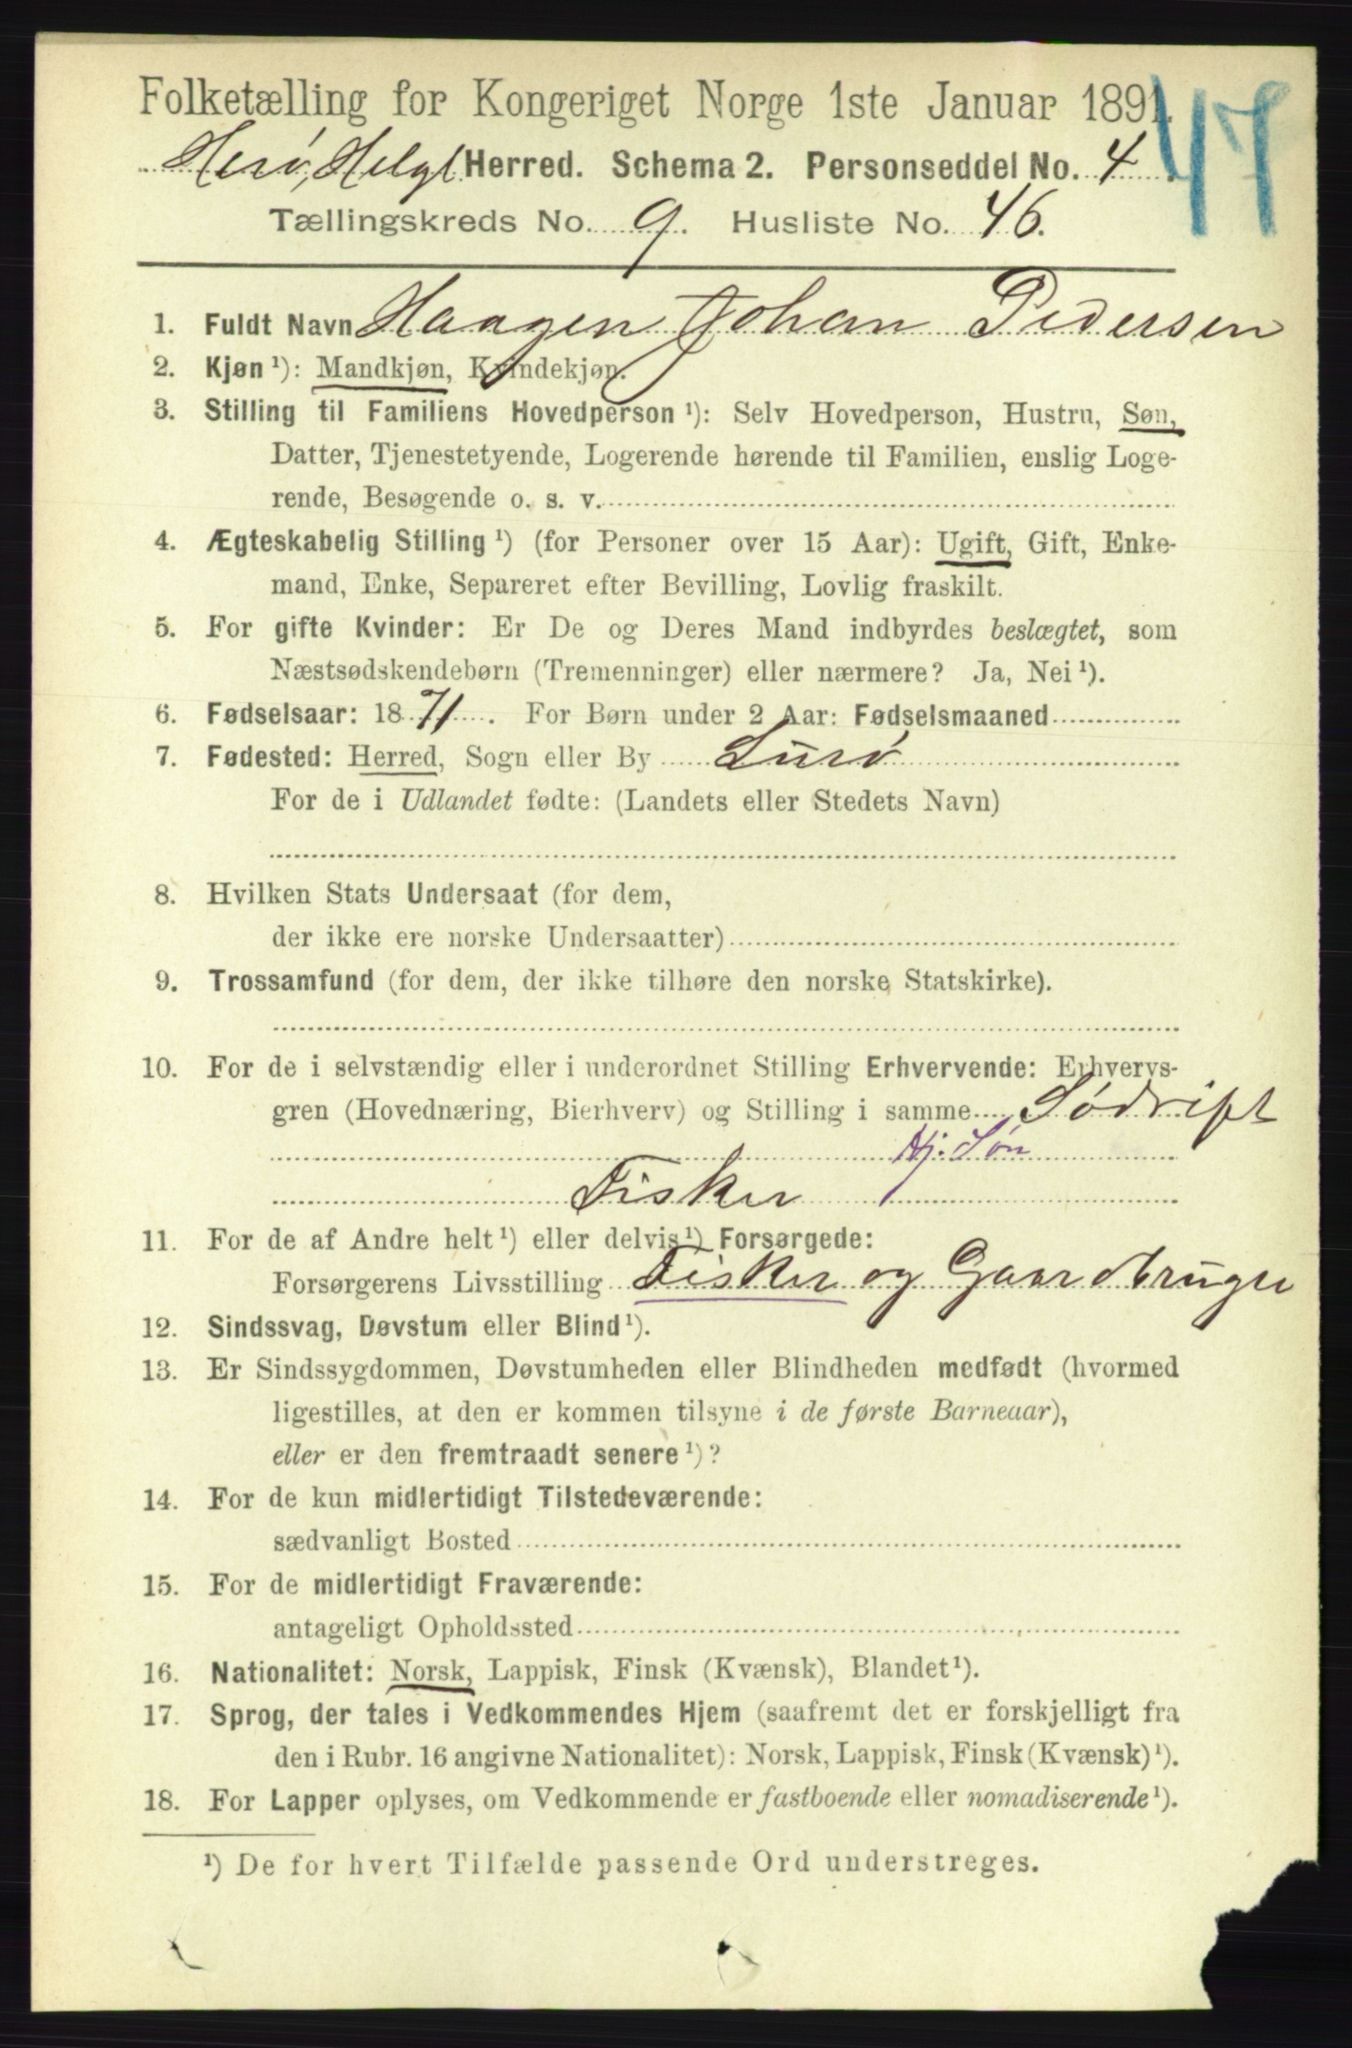 Folketælling for Kongeriget Norge 1ste Januar 1891.
47
Herø, Helgl Herred. Schema 2. Personseddel No. 4.
Tællingskreds No. 9. Husliste No. 46.
1. Fuldt Navn Haagen Johan Pedersen
2. Kjøn ¹): Mandkjøn, Kvindekjøn.
3. Stilling til Familiens Hovedperson ¹): Selv Hovedperson, Hustru, Søn,
Datter, Tjenestetyende, Logerende hørende til Familien, enslig Loge-
rende, Besøgende o. s. v.
4. Ægteskabelig Stilling ¹) (for Personer over 15 Aar): Ugift, Gift, Enke-
mand, Enke, Separeret efter Bevilling, Lovlig fraskilt.
5. For gifte Kvinder: Er De og Deres Mand indbyrdes beslægtet, som
Næstsødskendebørn (Tremenninger) eller nærmere? Ja, Nei ¹).
6. Fødselsaar: 1871. For Børn under 2 Aar: Fødselsmaaned
7. Fødested: Herred, Sogn eller By Lurø
For de i Udlandet fødte: (Landets eller Stedets Navn)
8. Hvilken Stats Undersaat (for dem,
der ikke ere norske Undersaatter)
9. Trossamfund (for dem, der ikke tilhøre den norske Statskirke).
10. For de i selvstændig eller i underordnet Stilling Erhvervende: Erhvervs-
gren (Hovednæring, Bierhverv) og Stilling i samme Sødrift
Hj. Søn
Fisker
11. For de af Andre helt ¹) eller delvis ¹) Forsørgede:
Forsørgerens Livsstilling Fisker og Gaardbruger
12. Sindssvag, Døvstum eller Blind ¹).
13. Er Sindssygdommen, Døvstumheden eller Blindheden medfødt (hvormed
ligestilles, at den er kommen tilsyne i de første Barneaar),
eller er den fremtraadt senere ¹)?
14. For de kun midlertidigt Tilstedeværende:
sædvanligt Bosted
15. For de midlertidigt Fraværende:
antageligt Opholdssted
16. Nationalitet: Norsk, Lappisk, Finsk (Kvænsk), Blandet ¹).
17. Sprog, der tales i Vedkommendes Hjem (saafremt det er forskjelligt fra
den i Rubr. 16 angivne Nationalitet): Norsk, Lappisk, Finsk (Kvænsk) ¹).
18. For Lapper oplyses, om Vedkommende er fastboende eller nomadiserende ¹).
¹) De for hvert Tilfælde passende Ord understreges.